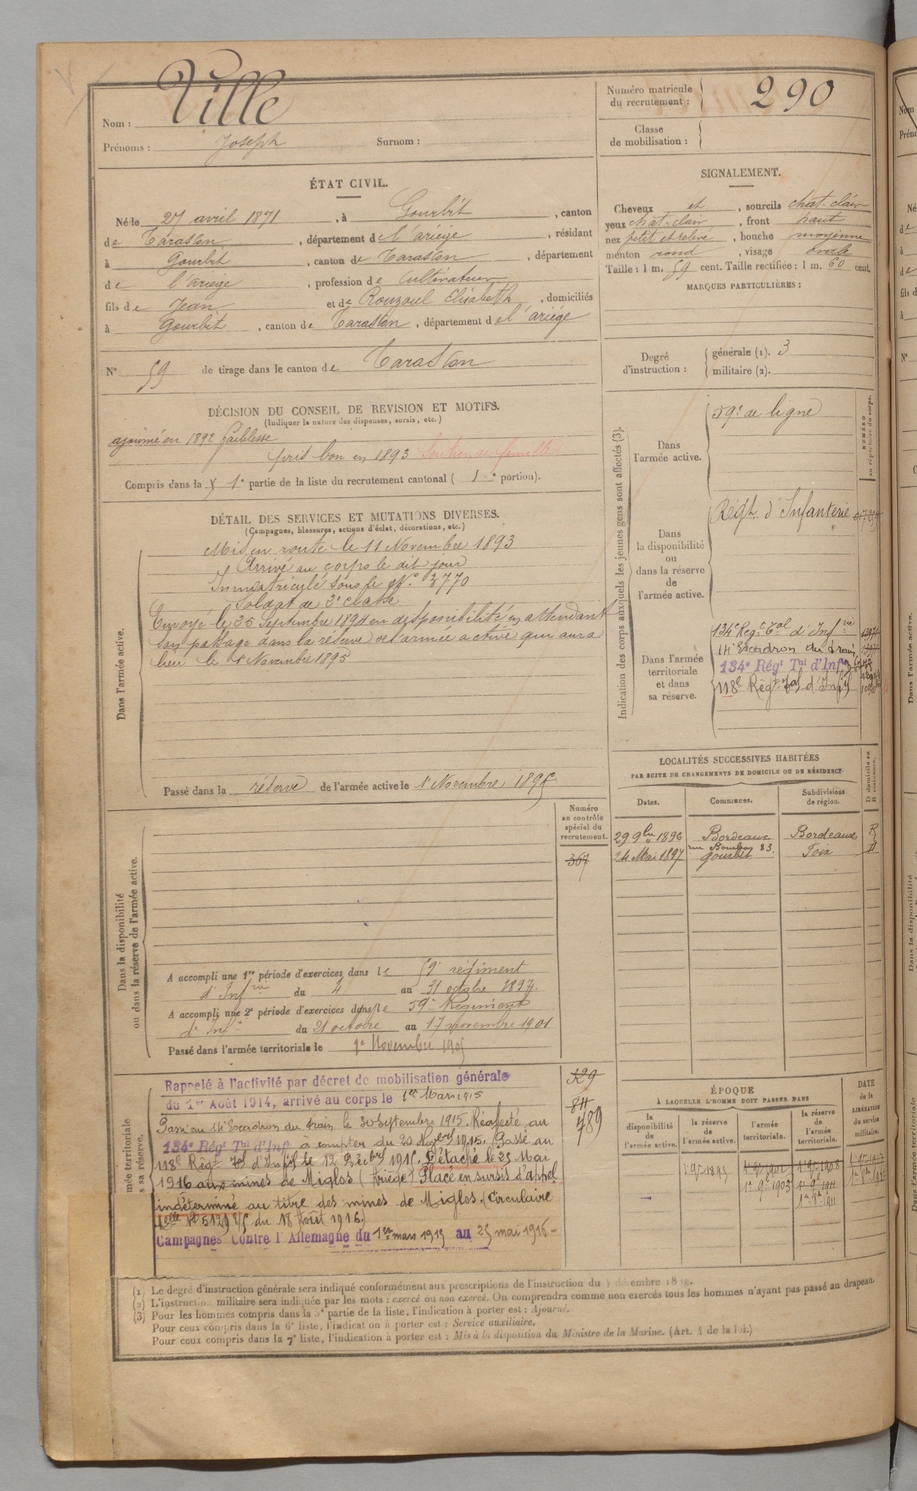 Nom : Ville
Prénoms : Joseph Surnom :
Numéro matricule du recrutement : 290
Classe de mobilisation :
ÉTAT CIVIL.
Né le 27 avril 1871, à Gourbit, canton
de Tarascon, département de l'ariège, résidant
à Gourbit, canton de Tarascon, département
de l'ariège, profession de Cultivateur
fils de Jean et de Rouzoul Elisabeth, domiciliés
à Gourbit, canton de Tarascon, département de l'ariège
N° 59 de tirage dans le canton de Tarascon
SIGNALEMENT.
Cheveux et, sourcils chat-clair
yeux chat-clair, front haut
nez petit et relevé, bouche moyenne
menton rond, visage ovale
Taille : 1 m. 59 cent. Taille rectifiée : 1 m. 60 cent.
MARQUES PARTICULIÈRES :
Degré d'instruction :
générale (1). 3
militaire (2).
DÉCISION DU CONSEIL DE REVISION ET MOTIFS.
(Indiquer la nature des dispenses, sursis, etc.)
ajourné en 1892 faiblesse
pris bon en 1893 Soutien de famille
Compris dans la 1e partie de la liste du recrutement cantonal ( 1e portion).
DÉTAIL DES SERVICES ET MUTATIONS DIVERSES.
(Campagnes, blessures, actions d'éclat, décorations, etc.)
Dans l'armée active.
Mis en route le 11 Novembre 1893
Arrivé au corps le dit jour
Immatriculé sous le N° 3770
Soldat de 2e classe
Envoyé le 25 Septembre 1894 en disponibilité en attendant
son passage dans la réserve de l'armée active qui aura
lieu le 1 Novembre 1895
Passé dans la réserve de l'armée active le 1 Novembre 1895
Indication des corps auxquels les jeunes gens sont affectés (3).
Dans l'armée active.
59e de ligne
Dans la disponibilité ou dans la réserve de l'armée active.
Régt. d'Infanterie
Dans l'armée territoriale et dans sa réserve.
134e Régt Tal d'Infrie
14e Escadron du train
134e Régt Tal d'Infie
118e Régt Tal d'Infie
LOCALITÉS SUCCESSIVES HABITÉES
PAR SUITE DE CHANGEMENTS DE DOMICILE OU DE RÉSIDENCE
Dates. Communes. Subdivisions de région. D domicile ou R résidence.
29 9bre 1896 Bordeaux Bordeaux R
rue Bouquey 83
24 Mai 1897 Gourbit Foix D
Numéro au contrôle spécial du recrutement.
367
Dans la disponibilité ou dans la réserve de l'armée active.
A accompli une 1re période d'exercices dans le 59e régiment
d'Infrie du 4 au 31 octobre 1897.
A accompli une 2e période d'exercices dans le 59e Régiment
d'Infie du 21 octobre au 17 novembre 1901
Passé dans l'armée territoriale le 1er Novembre 1905
Rappelé à l'activité par décret de mobilisation générale
du 1er Août 1914, arrivé au corps le 1er Mars 1915
Passé au 14e Escadron du train le 30 Septembre 1915. Réaffecté au
134e Régt Tal d'Infie à compter du 20 1915. Passé au
118e Régt Tal d'Infie le 12 Décbre 1915. Détaché le 25 Mai
1916 aux mines de Miglos (Ariège) Placé en sursis d'appel
indéterminé au titre des mines de Miglos (Circulaire
Nelle N° 6129 du 18 Août 1916.)
Campagnes Contre l'Allemagne du 1er mars 1915 au 25 mai 1916 -
329
811
789
ÉPOQUE
À LAQUELLE L'HOMME DOIT PASSER DANS
la disponibilité de l'armée active. la réserve de l'armée active. l'armée territoriale. la réserve de l'armée territoriale.
DATE de la LIBÉRATION du service militaire.
(1) Le degré d'instruction générale sera indiqué conformément aux prescriptions de l'instruction du
(2) L'instruction militaire sera indiquée par les mots : exercé ou non exercé. On comprendra comme non exercés tous les hommes n'ayant pas passé au drapeau.
(3) Pour les hommes compris dans la 5e partie de la liste, l'indication à porter est : Ajourné.
Pour ceux compris dans la 6e liste, l'indication à porter est : Service auxiliaire.
Pour ceux compris dans la 7e liste, l'indication à porter est : Mis à la disposition du Ministre de la Marine. (Art. 4 de la loi.)